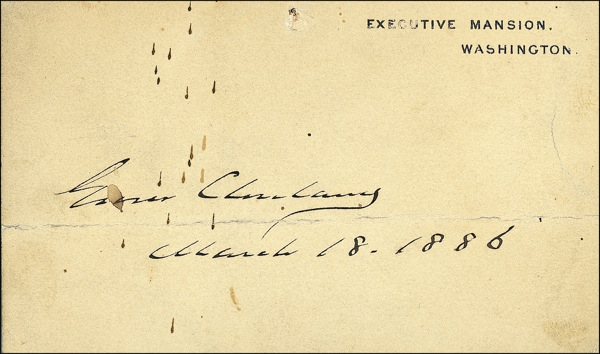 EXECUTIVE MANSION.
WASHINGTON.
Grover Cleveland
March 18. 1886